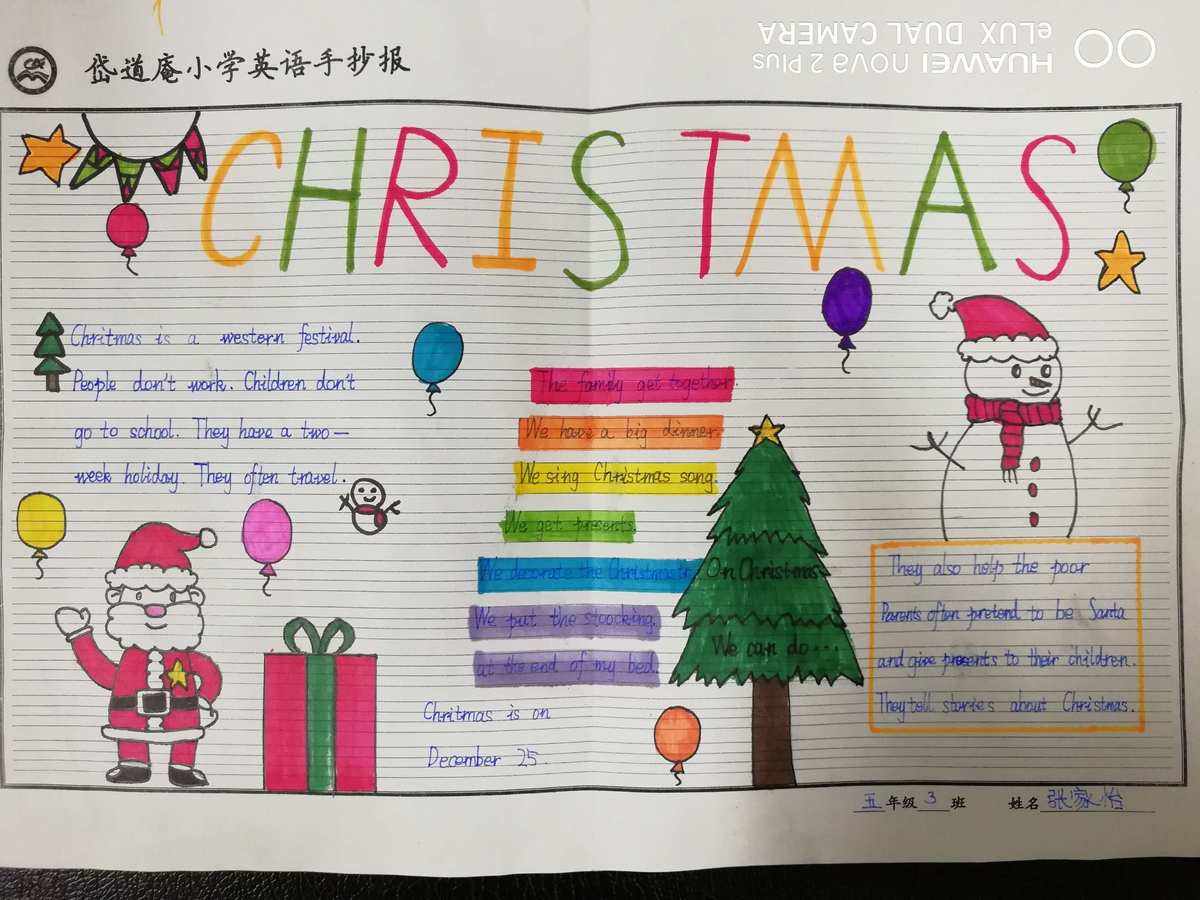 HUAWEI nova 2 Plus
eLUX DUAL CAMERA
岱道庵小学英语手抄报
CHRISTMAS
Chritmas is a western festival.
People don't work. Children don't
go to school. They have a two—
week holiday. They often travel.
The family get together.
We have a big dinner.
We sing Christmas song.
We get presents.
We decorate the Christmas
We put the stoocking.
at the end of my bed.
On Christmas
We can do...
Chritmas is on
December 25.
They also help the poor
Parents often pretend to be Santa
and give presents to their children.
They tell stories about Christmas.
五年级3班 姓名张家怡